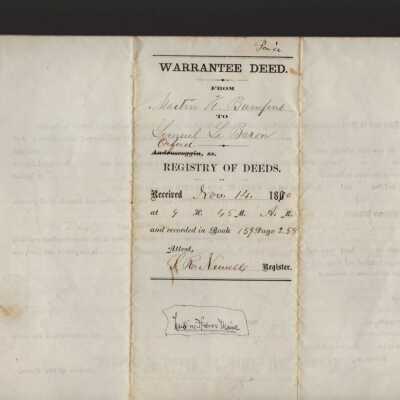 Paris
WARRANTEE DEED.
FROM
Martin V. Bumpus
TO
Lemuel Le Baron
Oxford
Androscoggin, ss.
REGISTRY OF DEEDS.
Received Nov 14, 18
at 9 H. 45 M. A. M.
and recorded in Book 159 Page 258
Attest,
Newell Register.
Maine